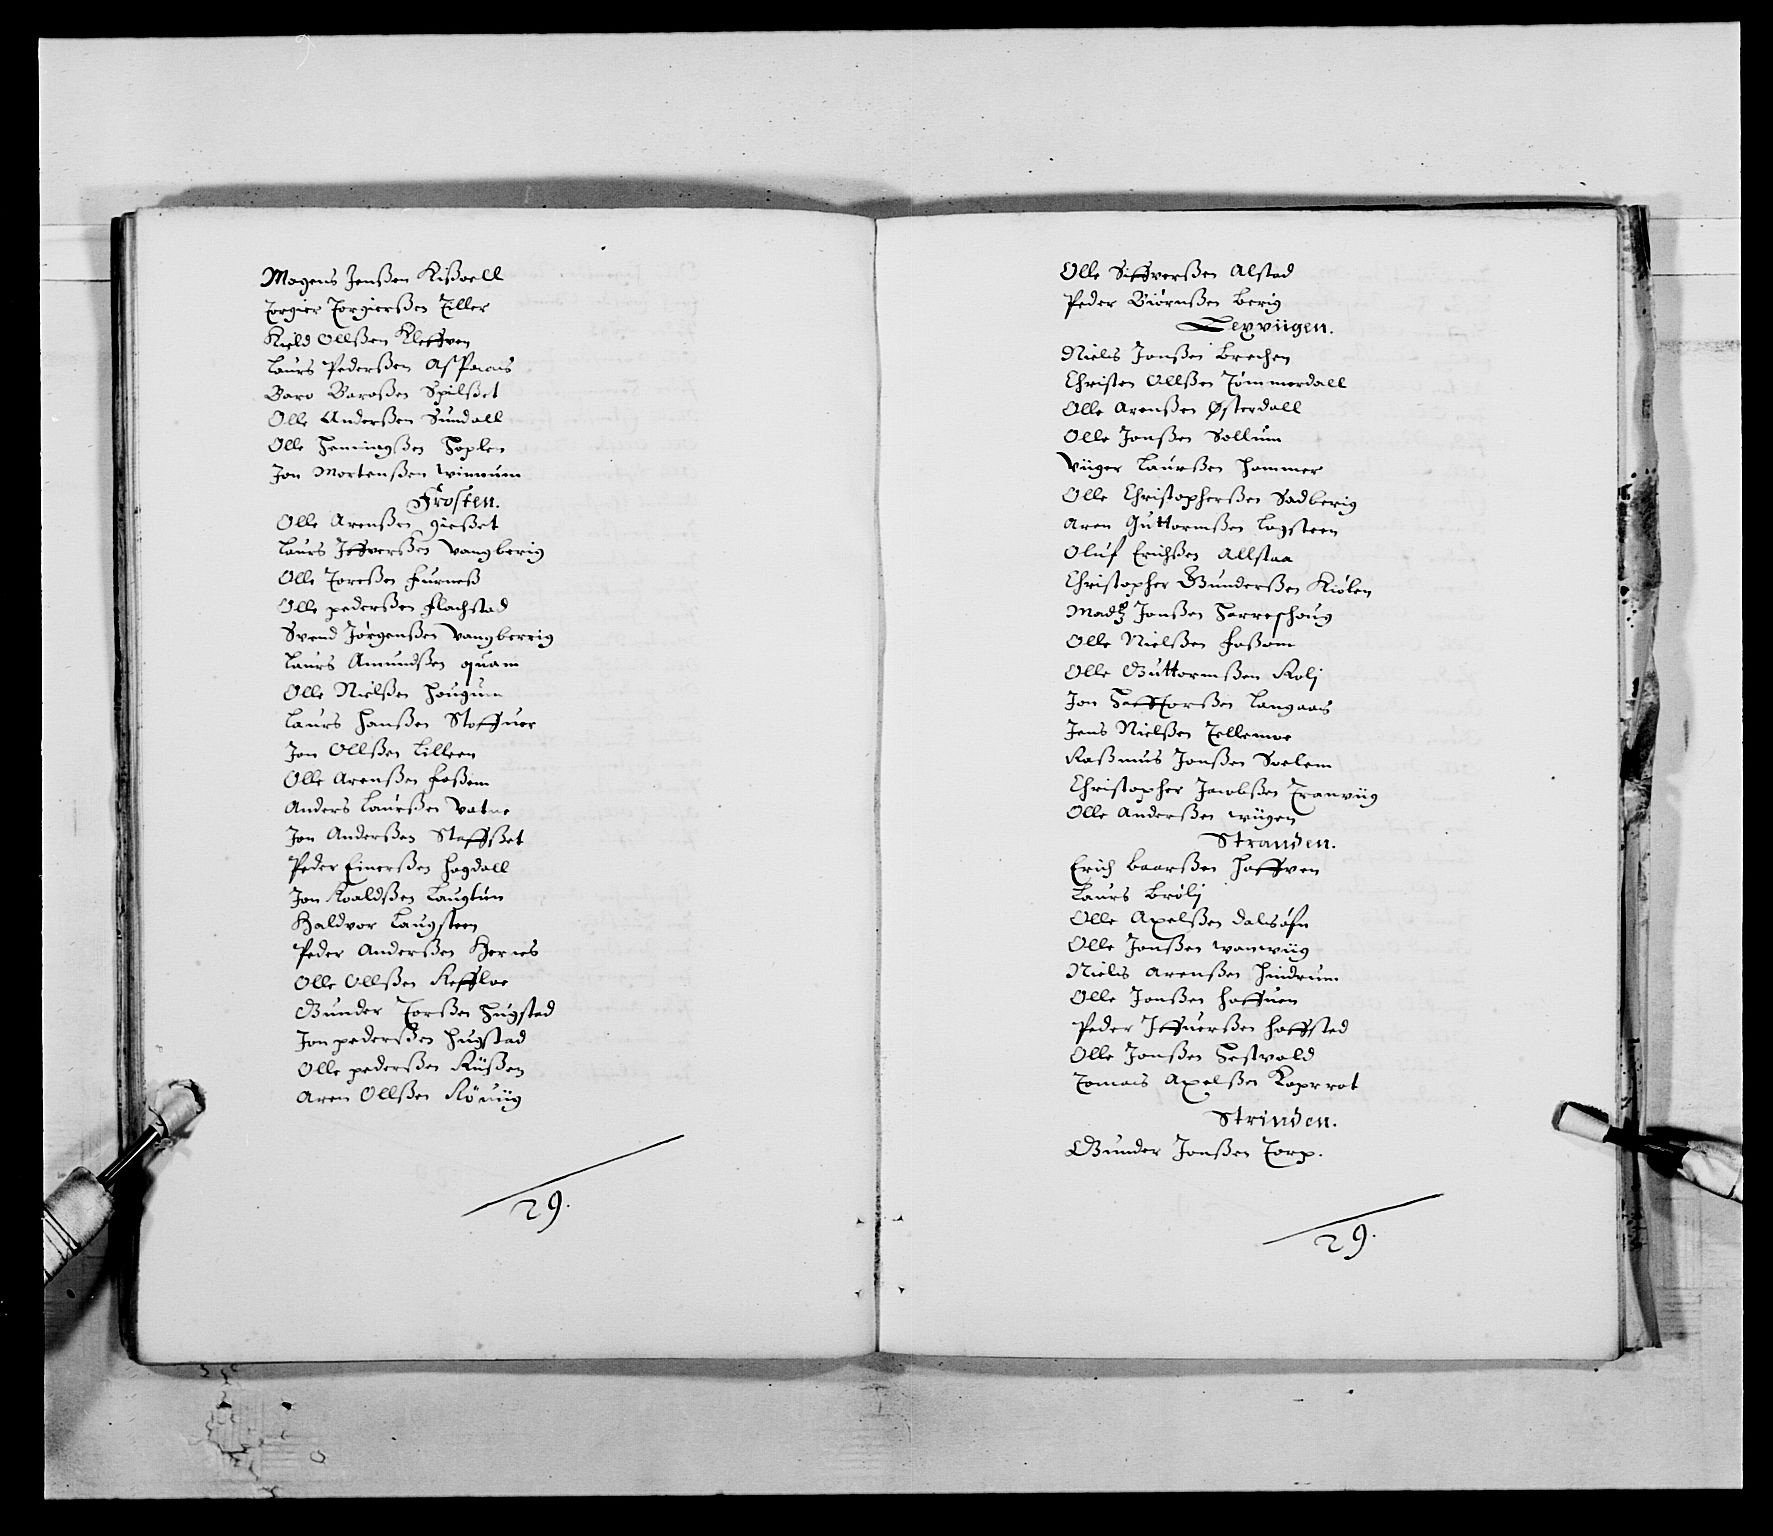 Mogens Jenßen Kißvell
Torgier Torgierßen Tiller
Kield Ollßen Kleffven
Laurs Pederßen Aspaais
Baro Baroßen Spilßet
Olle Anderßen Sundall
Olle Hemingßen Hoplen
Jon Mortenßen Winnum
Frosten.
Olle Arenßen gießet
Laurs Jeffverßen Vangberig
Olle Toreßen Furneß
Olle pederßen Flachstad
Svend Jörgenßen Vangberrig
Laurs Amundßen quam
Olle Nielßen Hougum
Laurs Hanßen Stoffuer
Jon Ollßen Lilleen
Olle Arenßen Foßem
Anders Laurßen Vatne
Jon Anderßen Steffßet
Peder Einerßen Hogdall
Jon Roaldßen Laugtun
Haldvor Laugsteen
Peder Anderßen Hernes
Olle Ollßen Reffloe
Gunder Torßen Hugstad
Jon pederßen Hugstad
Olle pederßen Rüßen
Aren Ollßen Röviig
29.
Olle Siffverßen Alstad
Peder Biörnßen Berig
Lexviigen.
Niels Jonßen Brechen
Christen Ollßen Tömmerdall
Olle Arenßen Østerdall
Olle Jonßen Sollum
Viiger Laurßen Hammer
Olle Christopherßen Sadberig
Aren Guttormßen Logsteen
Oluf Erichßen Allstaa
Christopher Gunderßen Kiölen
Madtz Jonßen Farreshoug
Olle Nielßen Foßom
Olle Guttormßen Rolj
Jon Hafftorßen Langaais
Jens Nielßen Tellemoe
Raßmus Jonßen Soelem
Christopher Jacobßen Tranviig
Olle Anderßen Wiigen
Stranden.
Erich Baarßen Hoffven
Laurs Brölj
Olle Axelßen Dalsöfn
Olle Jonßen Wanwiig
Niels Arenßen Hindrum
Olle Jonßen Hoffuen
Peder Jeffuerßen Hoffsted
Olle Jonßen Festvold
Tomais Axelßen Koprrot
Strinden.
Gunder Jonßen Torp.
29.